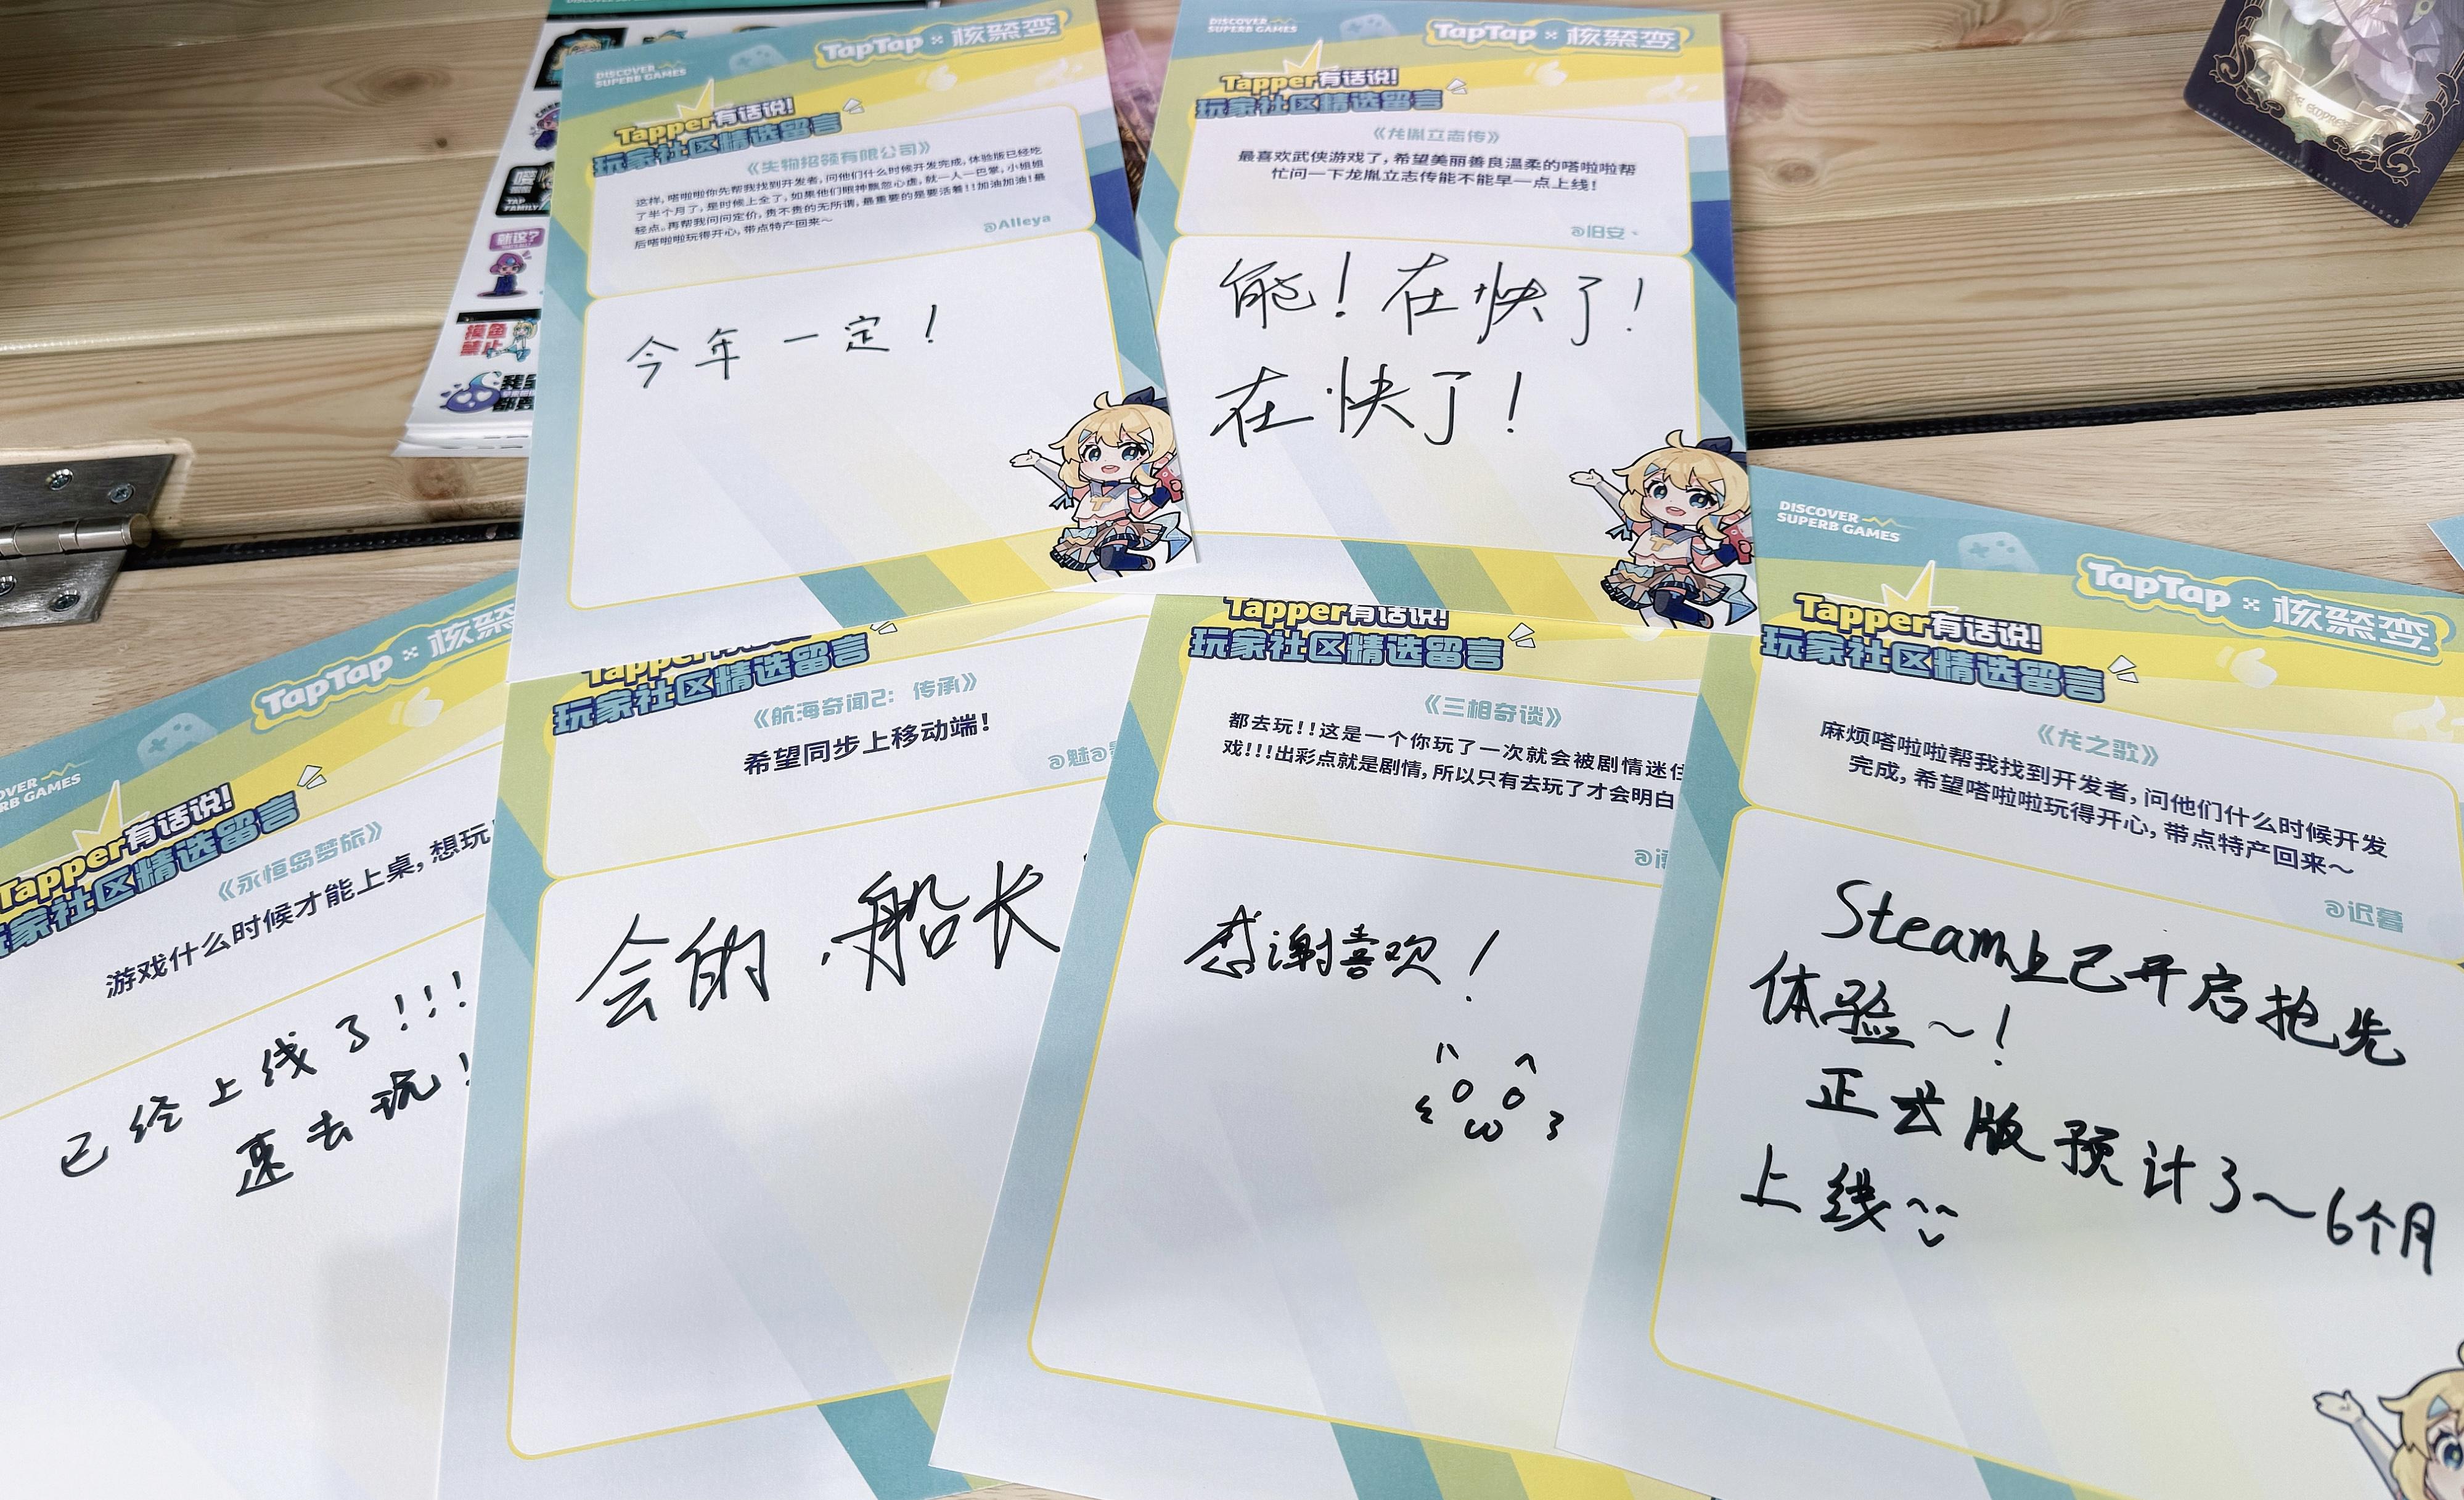 DISCOVER
SUPERB GAMES
TapTap × 核聚变
Tapper有话说!
玩家社区精选留言
《生物招领有限公司》
这样, 嗒啦啦你先帮我找到开发者, 问他们什么时候开发完成, 体验版已经吃
了半个月了, 是时候上全了, 如果他们眼神飘忽心虚, 就一人一巴掌, 小姐姐
轻点。再帮我问问定价, 贵不贵的无所谓, 最重要的是要活着!!加油加油!最
后嗒啦啦玩得开心, 带点特产回来~
@Alleya
今年一定!
DISCOVER
SUPERB GAMES
TapTap × 核聚变
Tapper有话说!
玩家社区精选留言
《龙胤立志传》
最喜欢武侠游戏了, 希望美丽善良温柔的嗒啦啦帮
忙问一下龙胤立志传能不能早一点上线!
@旧安、
能!在快了!
在快了!
就这?
摸鱼
禁止
TAP
FAMILY
TapTap × 核聚
Tapper有话说!
玩家社区精选留言
《永恒岛梦旅》
游戏什么时候才能上桌, 想玩
已经上线了!!!
速去玩!
玩家社区精选留言
《航海奇闻2: 传承》
希望同步上移动端!
@魅@
会的,船长
Tapper有话说!
玩家社区精选留言
《三相奇谈》
都去玩!!这是一个你玩了一次就会被剧情迷住
戏!!!出彩点就是剧情, 所以只有去玩了才会明白
感谢喜欢!
DISCOVER
SUPERB GAMES
TapTap × 核聚变
Tapper有话说!
玩家社区精选留言
《龙之歌》
麻烦嗒啦啦帮我找到开发者, 问他们什么时候开发
完成, 希望嗒啦啦玩得开心, 带点特产回来~
@迟暮
Steam上已开启抢先
体验~!
正式版预计3~6个月
上线